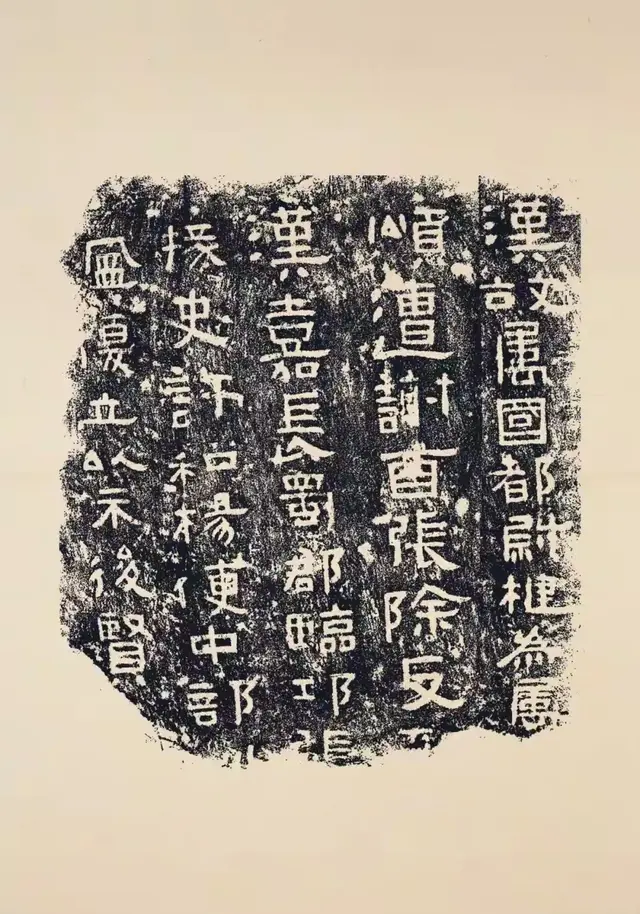 漢故屬國都尉楗為屬
順遭謝酋張除反
漢嘉長蜀郡臨邛張
掾史許和楊便中部
復立以示後賢